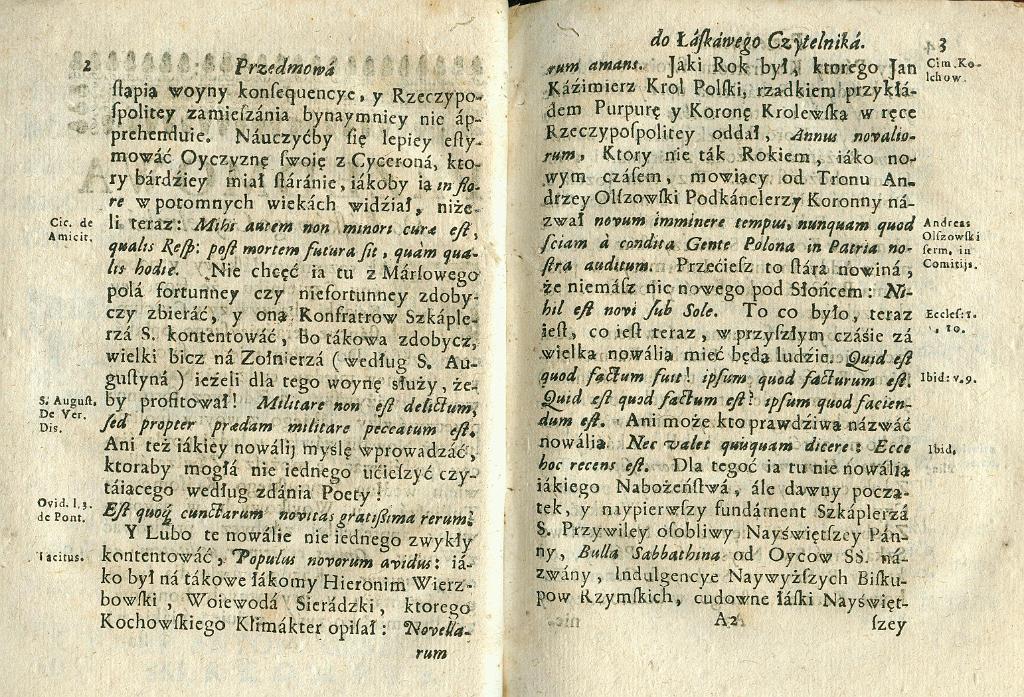 2 Przedmowá
ſtąpią woyny konſequencye, y Rzeczypo-
ſpolitey zamieſzánia bynaymniey nie áp-
prehenduie. Náuczyćby ſię lepiey eſty-
mowáć Oyczyznę ſwoię z Cyceroná, kto-
ry bárdźiey miał ſtáránie, iákoby ią in flo-
re w potomnych wiekách widźiał, niże-
Cic. de
Amicit.
li teraz: Mihi autem non minori curæ eſt,
qualis Reſp: poſt mortem futura ſit, quàm qua-
lis hodie. Nie chcęć ia tu z Márſowego
polá fortunney czy niefortunney zdoby-
czy zbieráć, y oną Konfratrow Szkáple-
rzá S. kontentowáć, bo tákowa zdobycz,
wielki bicz ná Zołnierzá (według S. Au-
guſtyná) ieżeli dla tego woynę służy, że-
S. Auguſt.
De Ver.
Dis.
by profitował! Militare non eſt delictum,
ſed propter prædam militare peccatum eſt.
Ani też iákiey nowálij myślę wprowadzáć,
ktoraby mogłá nie iednego ućieſzyć czy-
táiącego według zdánia Poety!
Ovid. l. 3.
de Pont.
Eſt quoq; cunctarum novitas gratiſſima rerum;
Y Lubo te nowálie nie iednego zwykły
Tacitus.
kontentowáć, Populus novorum avidus: iá-
ko był ná tákowe łákomy Hieronim Wierz-
bowſki, Woiewodá Sierádzki, ktorego
Kochowſkiego Klimákter opiſał: Novella-
rum
do Łáſkáwego Czytelniká. 3
rum amans. Jáki Rok był, ktorego Jan
Cim. Ko-
lchow.
Káźimierz Krol Polſki, rzadkiem przykłá-
dem Purpurę y Koronę Krolewſka w ręce
Rzeczypoſpolitey oddał, Annus novalio-
rum, Ktory nie ták Rokiem, iáko no-
wym czáſem, mowiący od Tronu An-
drzey Olſzowſki Podkánclerzy Koronny ná-
zwał novum imminere tempus, nunquam quod
Andreas
Olſzowſki
ſerm. in
Comitijs.
ſciam à condita Gente Polona in Patria no-
ſtra auditum. Przećieſz to ſtára nowiná,
że niemáſz nic nowego pod Słońcem: Ni-
hil eſt novi ſub Sole. To co było, teraz
Eccleſ: 1.
v. 10.
ieſt, co ieſt teraz, w przyſzłym czáśie zá
wielka nowália mieć będą ludzie. Quid eſt
quod factum fuit! ipſum quod facturum eſt.
Ibid: v. 9.
Quid eſt quod factum eſt? ipſum quod facien-
dum eſt. Ani może kto prawdźiwa názwáć
nowália. Nec valet quisquam dicere: Ecce
Ibid.
hoc recens eſt. Dla tegoć ia tu nie nowália
iákiego Nabożeńſtwá, ále dawny począ-
tek, y naypierwſzy fundáment Szkáplerzá
S. Przywiley oſobliwy Nayświętſzey Pán-
ny, Bulla Sabbathina od Oycow SS. ná-
zwány, Indulgencye Naywyżſzych Biſku-
pow Rzymſkich, cudowne łáſki Nayświęt-
A2 ſzey